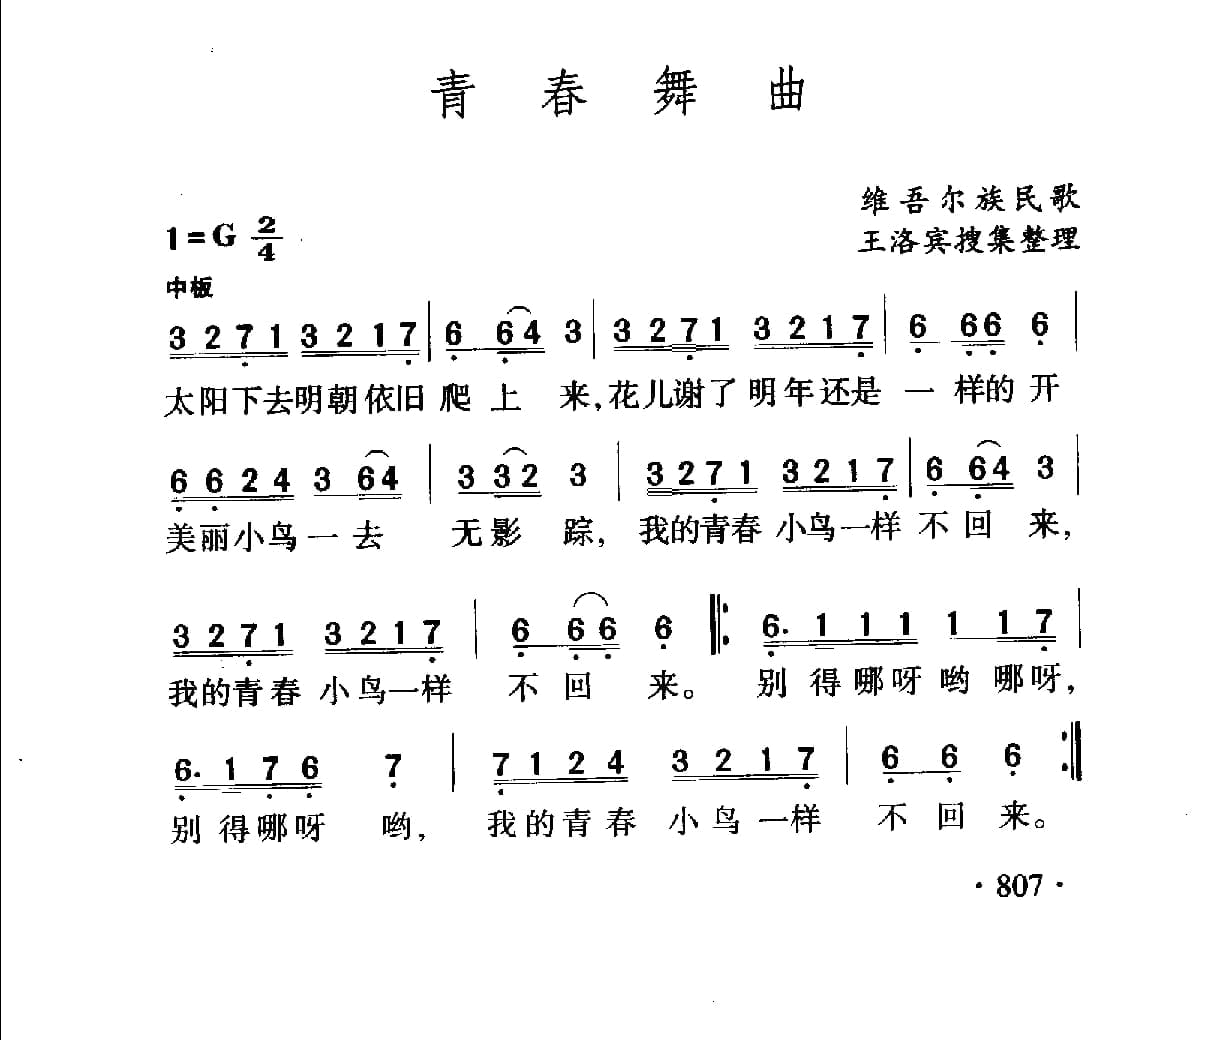 青春舞曲
维吾尔族民歌
1=G 2/4
王洛宾搜集整理
中板
3 2 7 1 3 2 1 7 | 6 6 4 3 | 3 2 7 1 3 2 1 7 | 6 6 6 6 |
太阳下去明朝依旧爬上来,花儿谢了明年还是一样的开
6 6 2 4 3 6 4 | 3 3 2 3 | 3 2 7 1 3 2 1 7 | 6 6 4 3 |
美丽小鸟一去无影踪,我的青春小鸟一样不回来,
3 2 7 1 3 2 1 7 | 6 6 6 6 ‖: 6. 1 1 1 1 1 7 |
我的青春小鸟一样不回来。别得哪呀哟哪呀,
6. 1 7 6 7 | 7 1 2 4 3 2 1 7 | 6 6 6 :‖
别得哪呀哟,我的青春小鸟一样不回来。
·807·